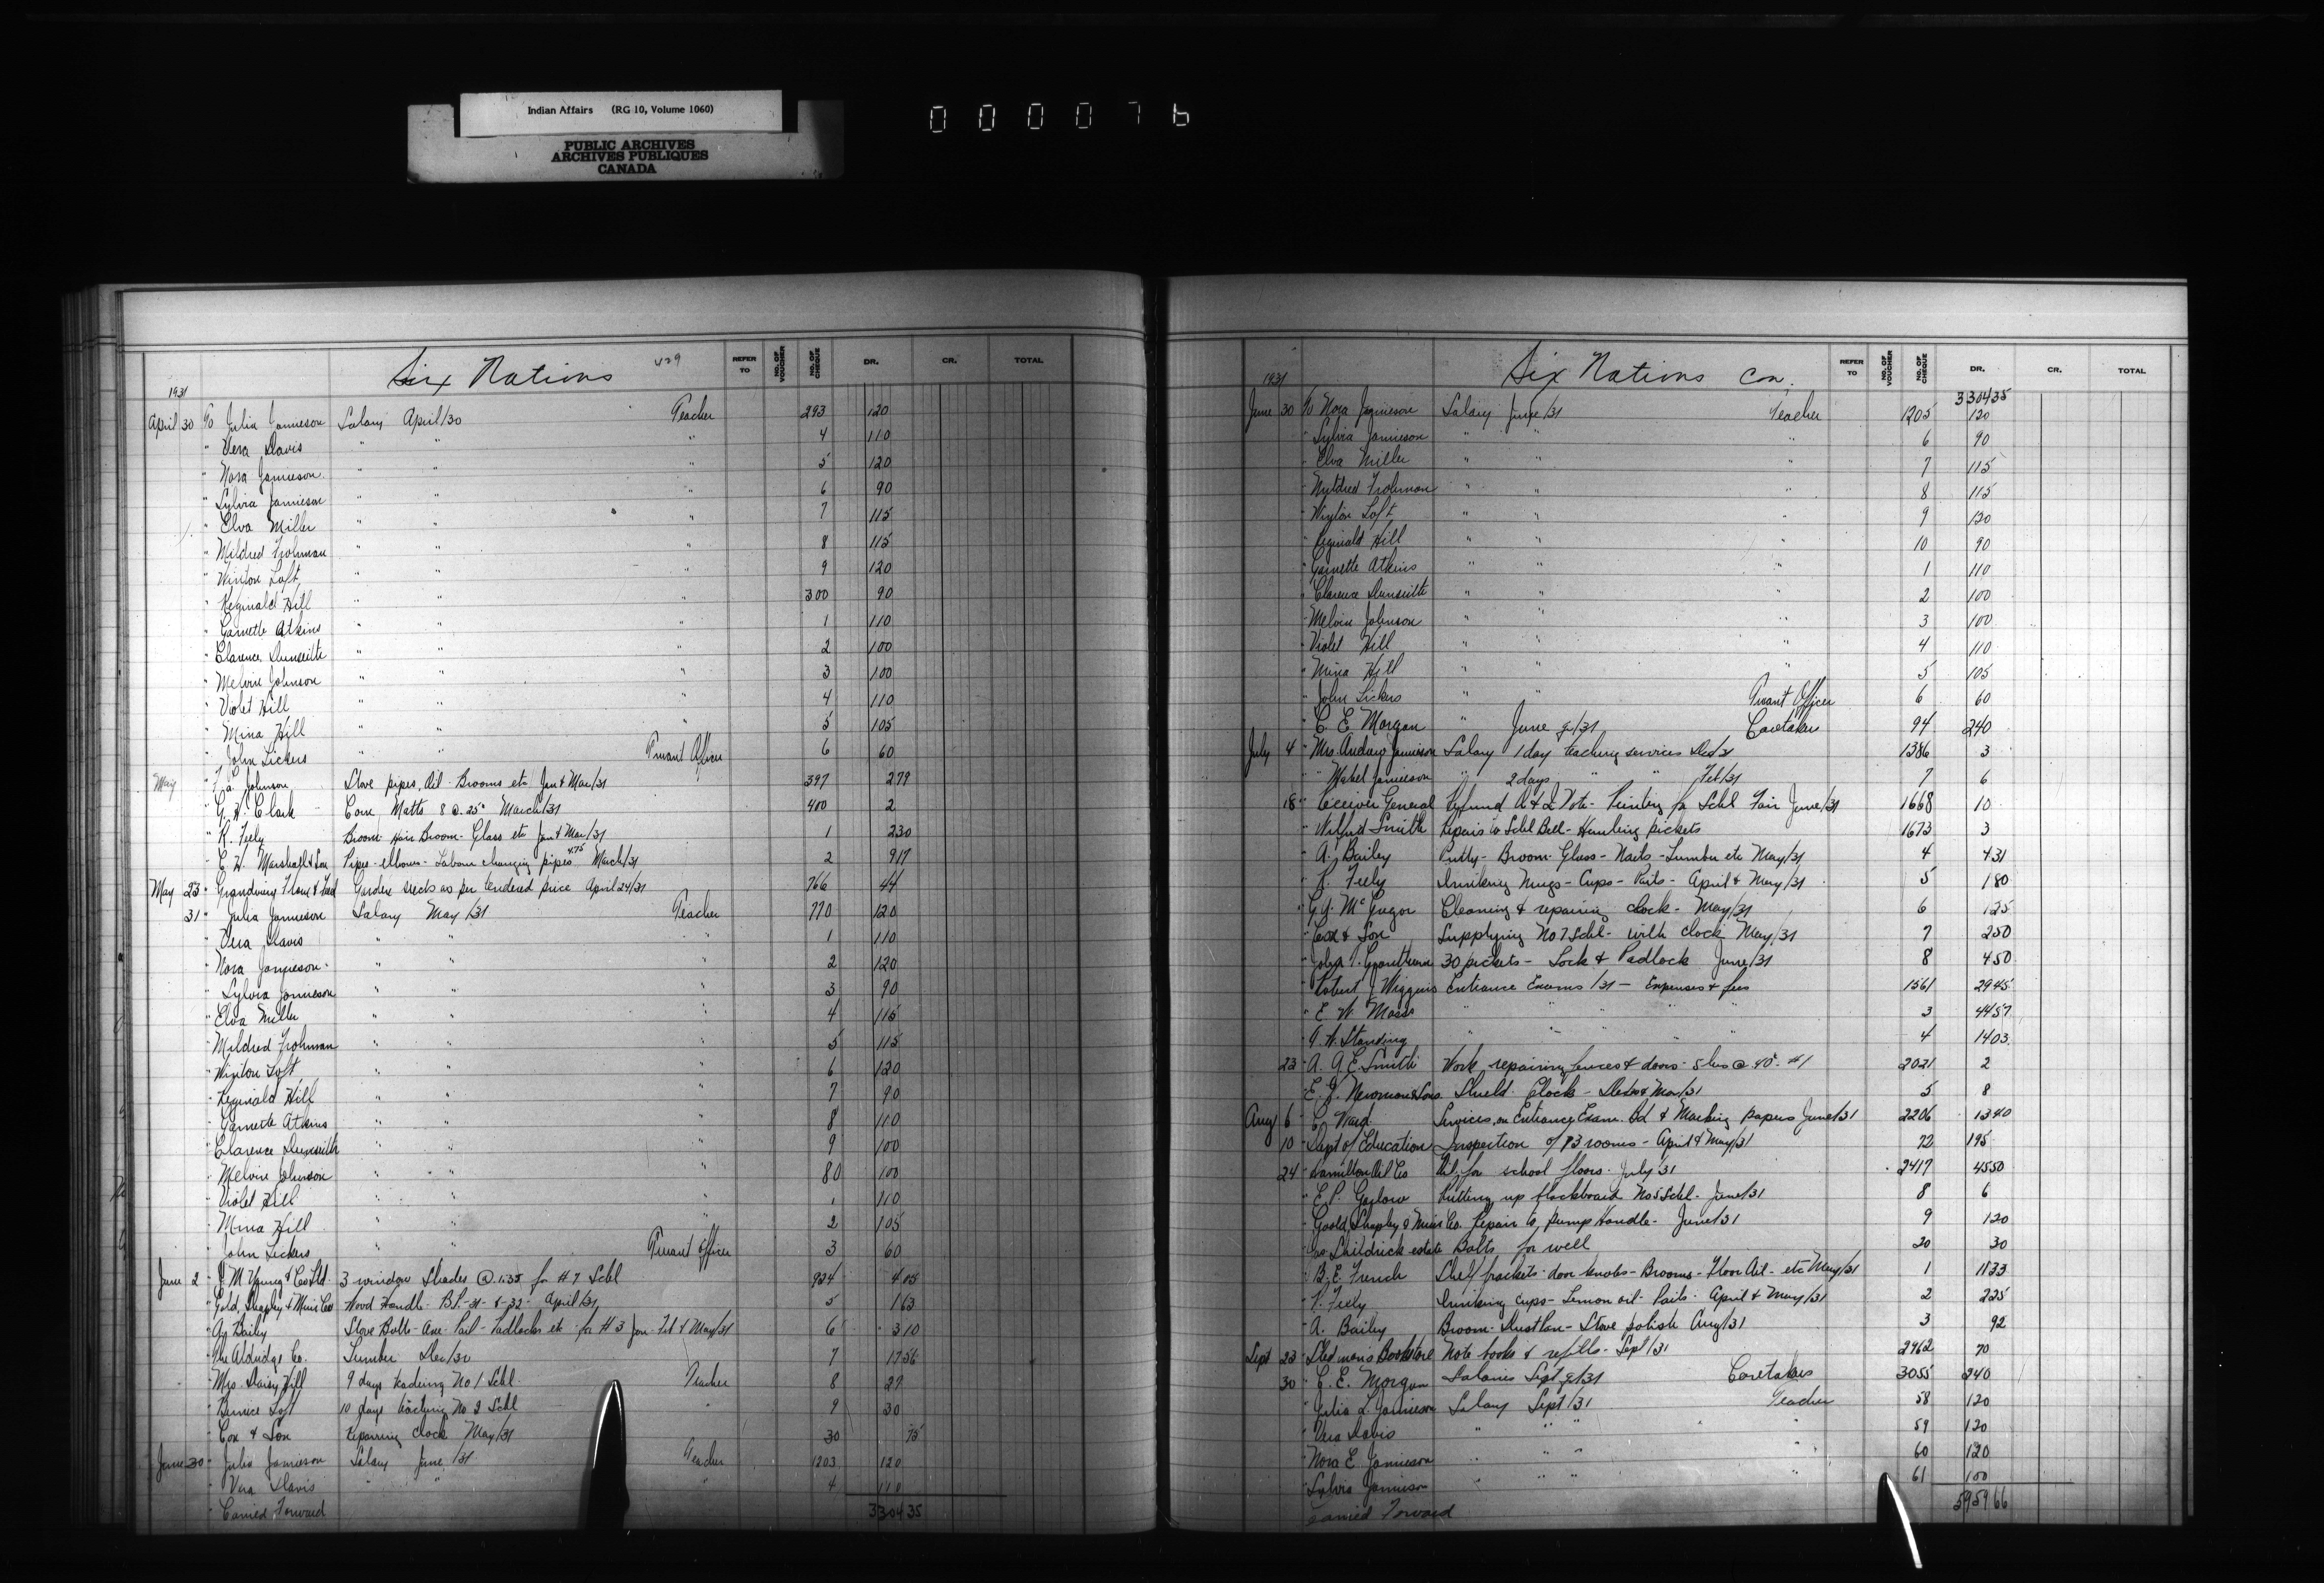 Indian Affairs (RG 10, Volume 1060)
PUBLIC ARCHIVES
ARCHIVES PUBLIQUES
CANADA
000076
Six Nations
REFER TO NO. OF VOUCHER NO. OF CHEQUE DR. CR. TOTAL
1931
April 30 To Julia Jamieson Salary April/30 Teacher 293 120
" Vera Davis " " " 4 110
" Nora Jamieson " " " 5 120
" Sylvia Jamieson " " " 6 90
" Elva Miller " " " 7 115
" Mildred Frohman " " " 8 115
" Winton Loft " " " 9 120
" Reginald Hill " " " 300 90
" Garnette Atkins " " " 1 110
" Clarence Dunseith " " " 2 100
" Melvin Johnson " " " 3 100
" Violet Hill " " " 4 110
" Mina Hill " " " 5 105
" John Lickers " " Truant Officer 6 60
May Johnson Stove pipes, Oil Brooms etc Jan & Mar/31 397 2 79
" G. H. Clark Matts 8 @ .25 March/31 400 2
" R. Feely Broom Hair Broom - Glass etc Jan & Mar/31 1 2 30
" E. H. Marshall & Son Pipes - elbows - Labour changing pipes 4.75 March/31 2 9 17
May 23 Garden seeds as per tendered price April 24/31 766 44
31 " Julia Jamieson Salary May/31 Teacher 770 120
" Vera Davis " " " 1 110
" Nora Jamieson " " " 2 120
" Sylvia Jamieson " " " 3 90
" Elva Miller " " " 4 115
" Mildred Frohman " " " 5 115
" Winton Loft " " " 6 120
" Reginald Hill " " " 7 90
" Garnette Atkins " " " 8 110
" Clarence Dunseith " " " 9 100
" Melvin Johnson " " " 80 100
" Violet Hill " " " 1 110
" Mina Hill " " " 2 105
" John Lickers " " Truant Officer 3 60
June 2 J. M. Young & Co Ltd 3 window Shades @ 1.35 for #7 Schl 924 4 05
" Gold, Shapley & Muir Co Wood Handle - April/31 5 1 63
" Bailey Stove Bolts - Axe - Pail - Padlocks etc for #3 Jan - Feb & May/31 6 3 10
" The Aldridge Co. Lumber Dec/30 7 17 56
" Mrs. Daisy Hill 9 days teaching No 1 Schl Teacher 8 27
" Bernice Loft 10 days teaching No 2 Schl " 9 30
" Cox & Son Repairing clock May/31 30 75
June 30 " Julia Jamieson Salary June/31 Teacher 1203 120
" Vera Davis " " " 4 110
" Carried Forward 3304 35
Six Nations Con.
REFER TO NO. OF VOUCHER NO. OF CHEQUE DR. CR. TOTAL
1931 3304 35
June 30 To Nora Jamieson Salary June/31 Teacher 1205 120
" Sylvia Jamieson " " " 6 90
" Elva Miller " " " 7 115
" Mildred Frohman " " " 8 115
" Winton Loft " " " 9 120
" Reginald Hill " " " 10 90
" Garnette Atkins " " " 1 110
" Clarence Dunseith " " " 2 100
" Melvin Johnson " " " 3 100
" Violet Hill " " " 4 110
" Mina Hill " " " 5 105
" John Lickers " " Truant Officer 6 60
" C. E. Morgan " June q/31 Caretaker 94 240
July 4 " Mrs. Andrew Jamieson Salary 1 day teaching services Dec/31 1386 3
" " Mabel Jamieson " 2 days " " Feb/31 7 6
18 " Receiver General Refund Vote - Printing for Schl Fair June/31 1668 10
" Wilfred Smith Repairs to Schl Bell - Hauling pickets 1673 3
" A. Bailey Putty - Broom - Glass - Nails - Lumber etc May/31 4 4 31
" R. Feely Drinking Mugs - Cups - Pails - April & May/31 5 1 80
" McGregor Cleaning & repairing clock - May/31 6 1 25
" Cox & Son Supplying No 7 Schl - with clock May/31 7 2 50
" John 30 pickets - Lock & Padlock June/31 8 4 50
" Robert J. Wiggins Entrance Exams/31 - Expenses & fees 1561 29 45
" E. W. Moss " " " 3 44 57
" Standing " " " 4 14 03
23 " A. G. E. Smith Work repairing fences & doors - 5 hrs @ 40¢ #1 2021 2
" E. J. Newman & Sons Clock - 5 8
Aug 6 " C. Ward Services on Entrance Exam. Bd & Marking papers June/31 2206 13 40
10 " Dept of Education Inspection of 13 rooms - April & May/31 72 195
24 " Hamilton Oil Co Oil for school floors - July/31 2417 45 50
" E. P. Garlow Putting up blackboard No 5 Schl - June/31 8 6
" Goold, Shapley & Muir Co. Repair to pump Handle - June/31 9 1 20
" estate Bolts for well 20 30
" B. E. French Shelf brackets - door knobs - Brooms - Floor Oil - etc May/31 1 11 33
" R. Feely Drinking cups - Lemon oil - Pails - April & May/31 2 2 25
" A. Bailey Broom - Dustpan - Stove polish Aug/31 3 92
Sept 23 " Stedman's Bookstore Note books & refills - Sept/31 2962 70
30 " C. E. Morgan Salaries Sept q/31 Caretakers 3055 240
" Julia L. Jamieson Salary Sept/31 Teacher 58 120
" Vera Davis " " " 59 120
" Nora E. Jamieson " " " 60 120
" Sylvia Jamieson " " " 61 100
Carried Forward 5959 66